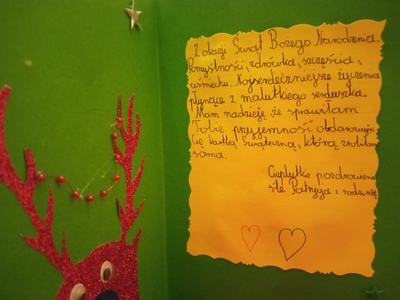 Z okazji Świąt Bożego Narodzenia
Pomyślności, zdrówka, szczęścia,
uśmiechu. Najserdeczniejsze życzenia
płynące z malutkiego serduszka.
Mam nadzieję, że sprawiłam
Tobie przyjemność obdarowując
Cię kartką świąteczną, którą zrobiłam
sama.
Cieplutkie pozdrowienia
śle Patrycja z rodziną